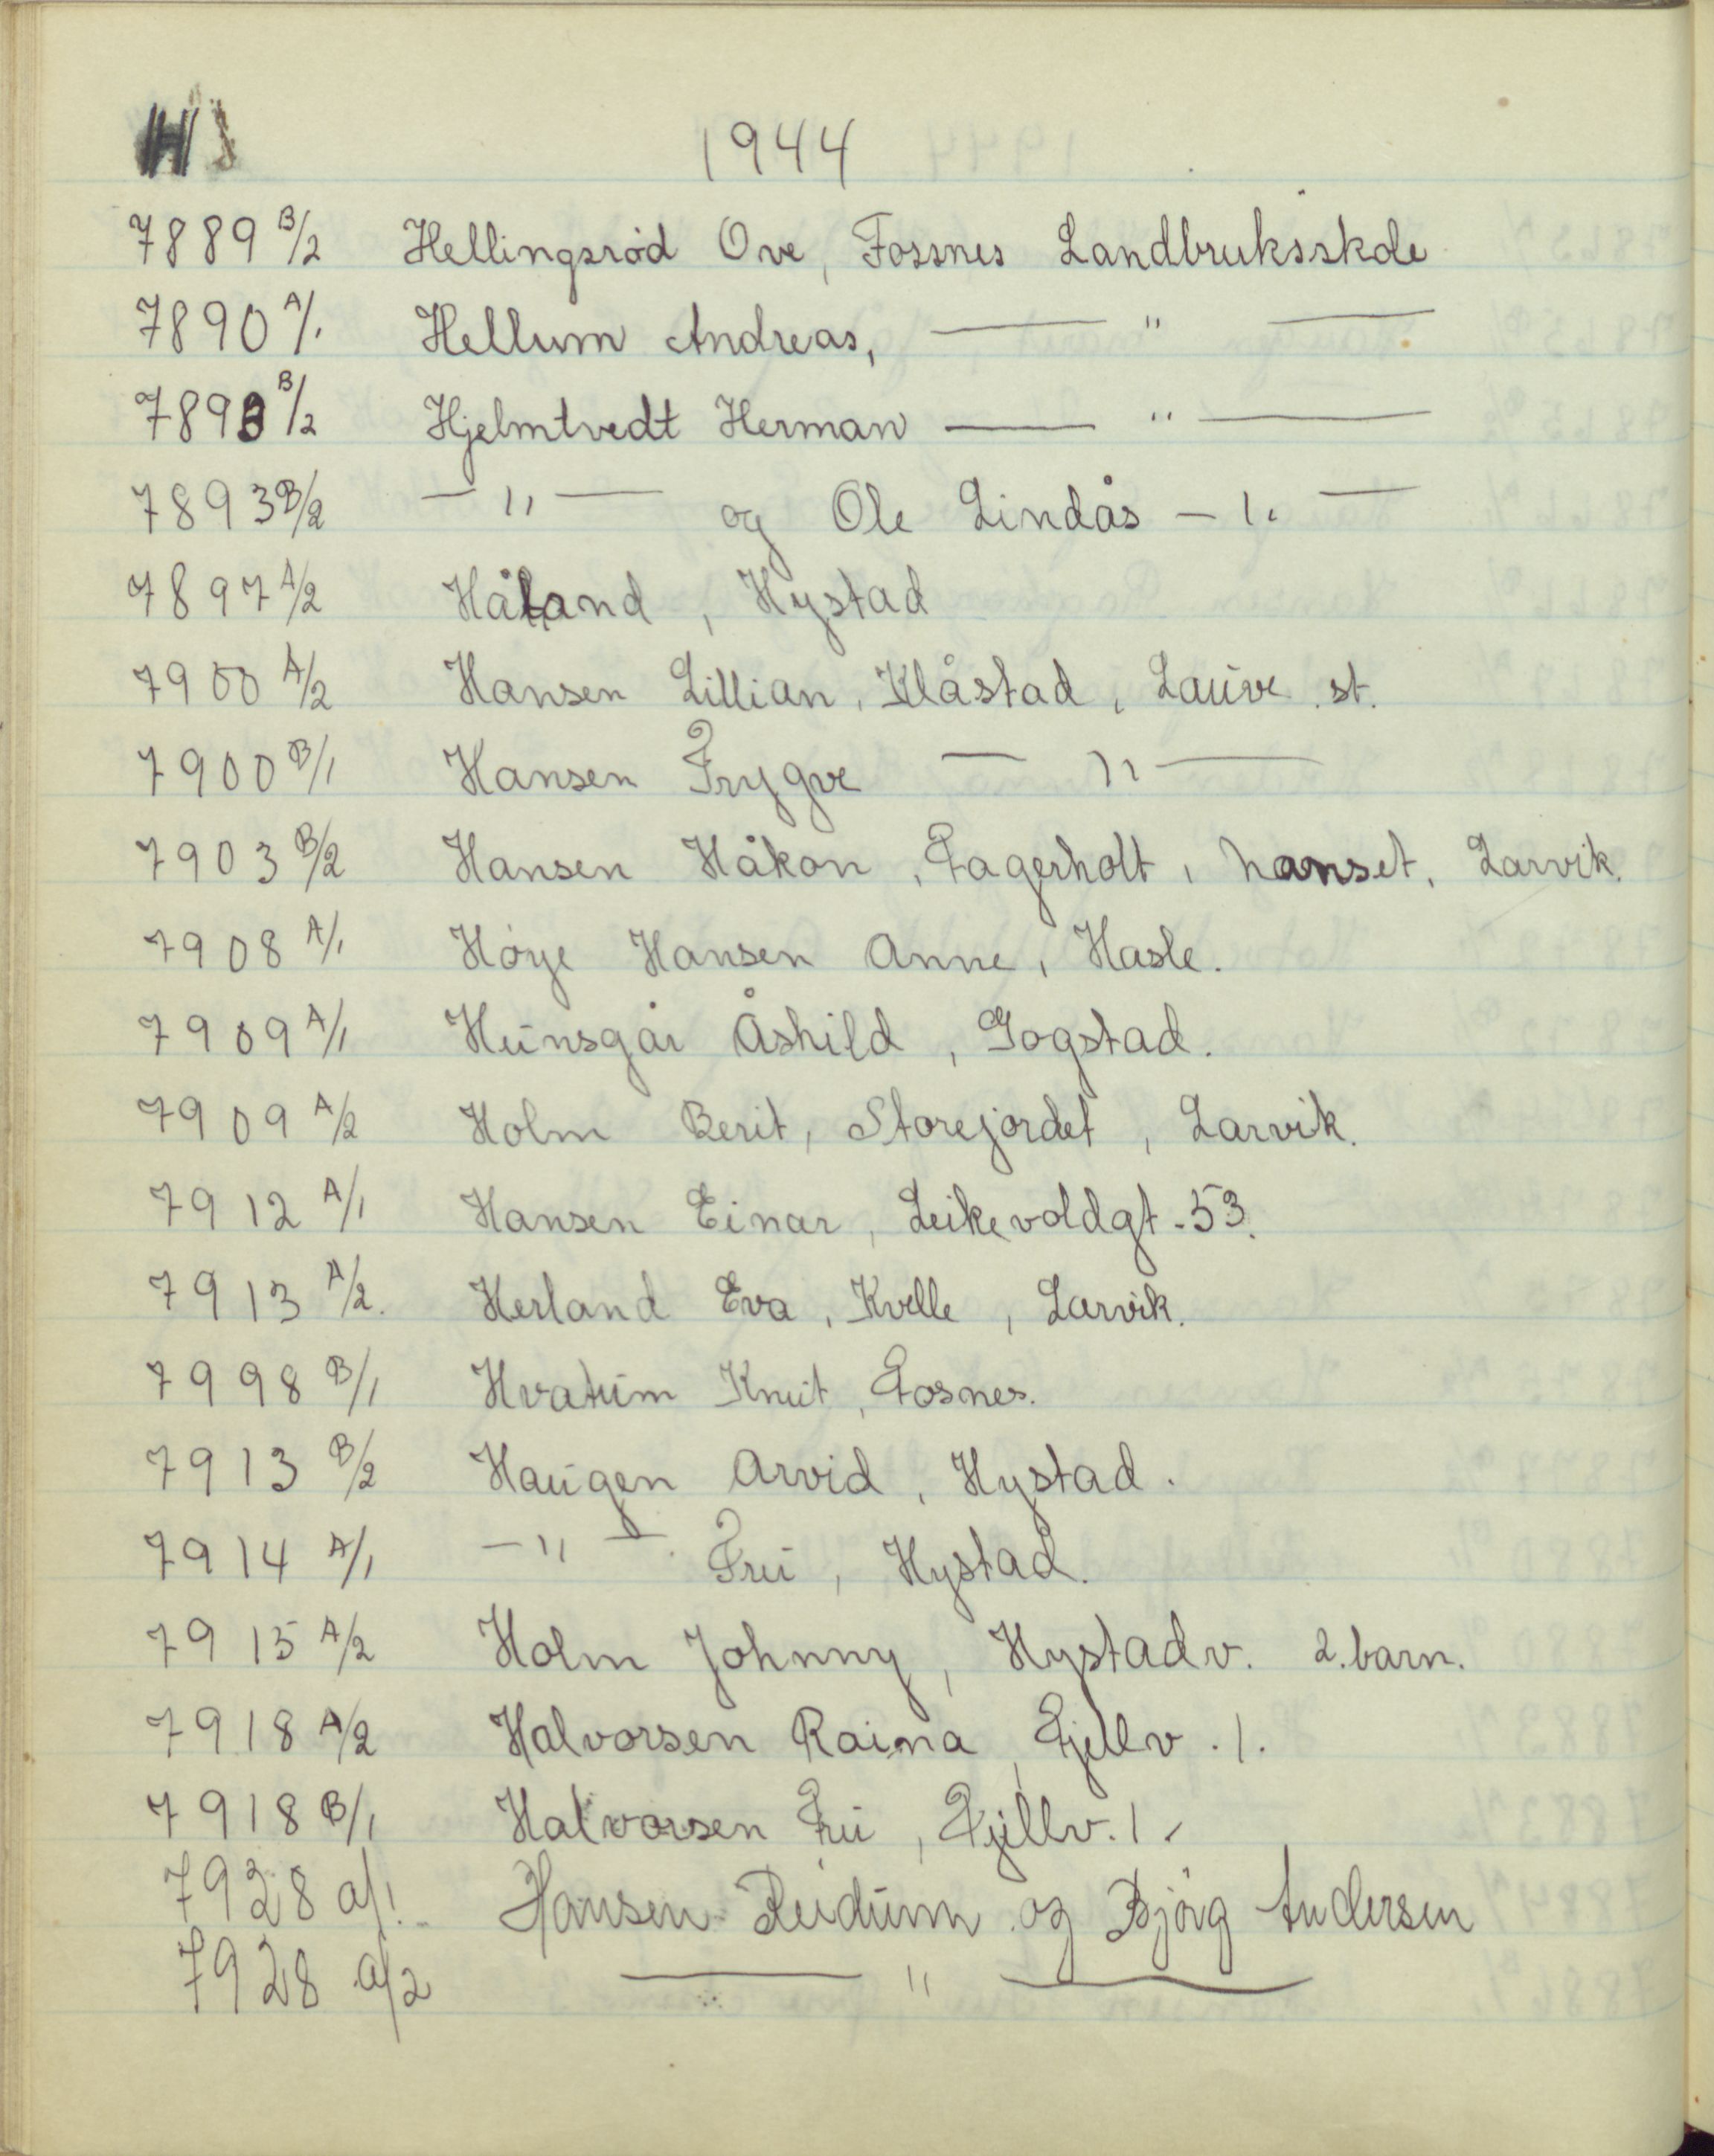 H
1944
7889 B/2 Hellingsrød Ove, Fossnes Landbruksskole
7890 A/1 Hellum Andreas, — " —
7893 B/2 Hjelmtvedt Herman — " —
7893 B/2 — " — og Ole Lindås — " —
7897 A/2 Håland, Hystad
7900 A/2 Hansen Lillian, Klåstad, Lauve st.
7900 B/1 Hansen Trygve — " —
7903 B/2 Hansen Håkon, Fagerholt, Nanset, Larvik.
7908 A/1 Høye Hansen Anne, Hasle.
7909 A/1 Hunsgår Åshild, Gogstad.
7909 A/2 Holm Berit, Storejordet, Larvik.
7912 A/1 Hansen Einar, Leikevoldgt. 53.
7913 A/2. Herland Eva, Kvelle, Larvik.
7998 B/1 Hvatum Knut, Fosnes.
7913 B/2 Haugen Arvid, Hystad.
7914 A/1 — " — Fru, Hystad.
7915 A/2 Holm Johnny, Hystadv. 2. barn.
7918 A/2 Halvorsen Raina, Fjellv. 1.
7918 B/1 Halvorsen Fru, Fjellv. 1.
7928 a/1. Hansen Reidum og Bjørg Andersen
7928 a/2 — " —